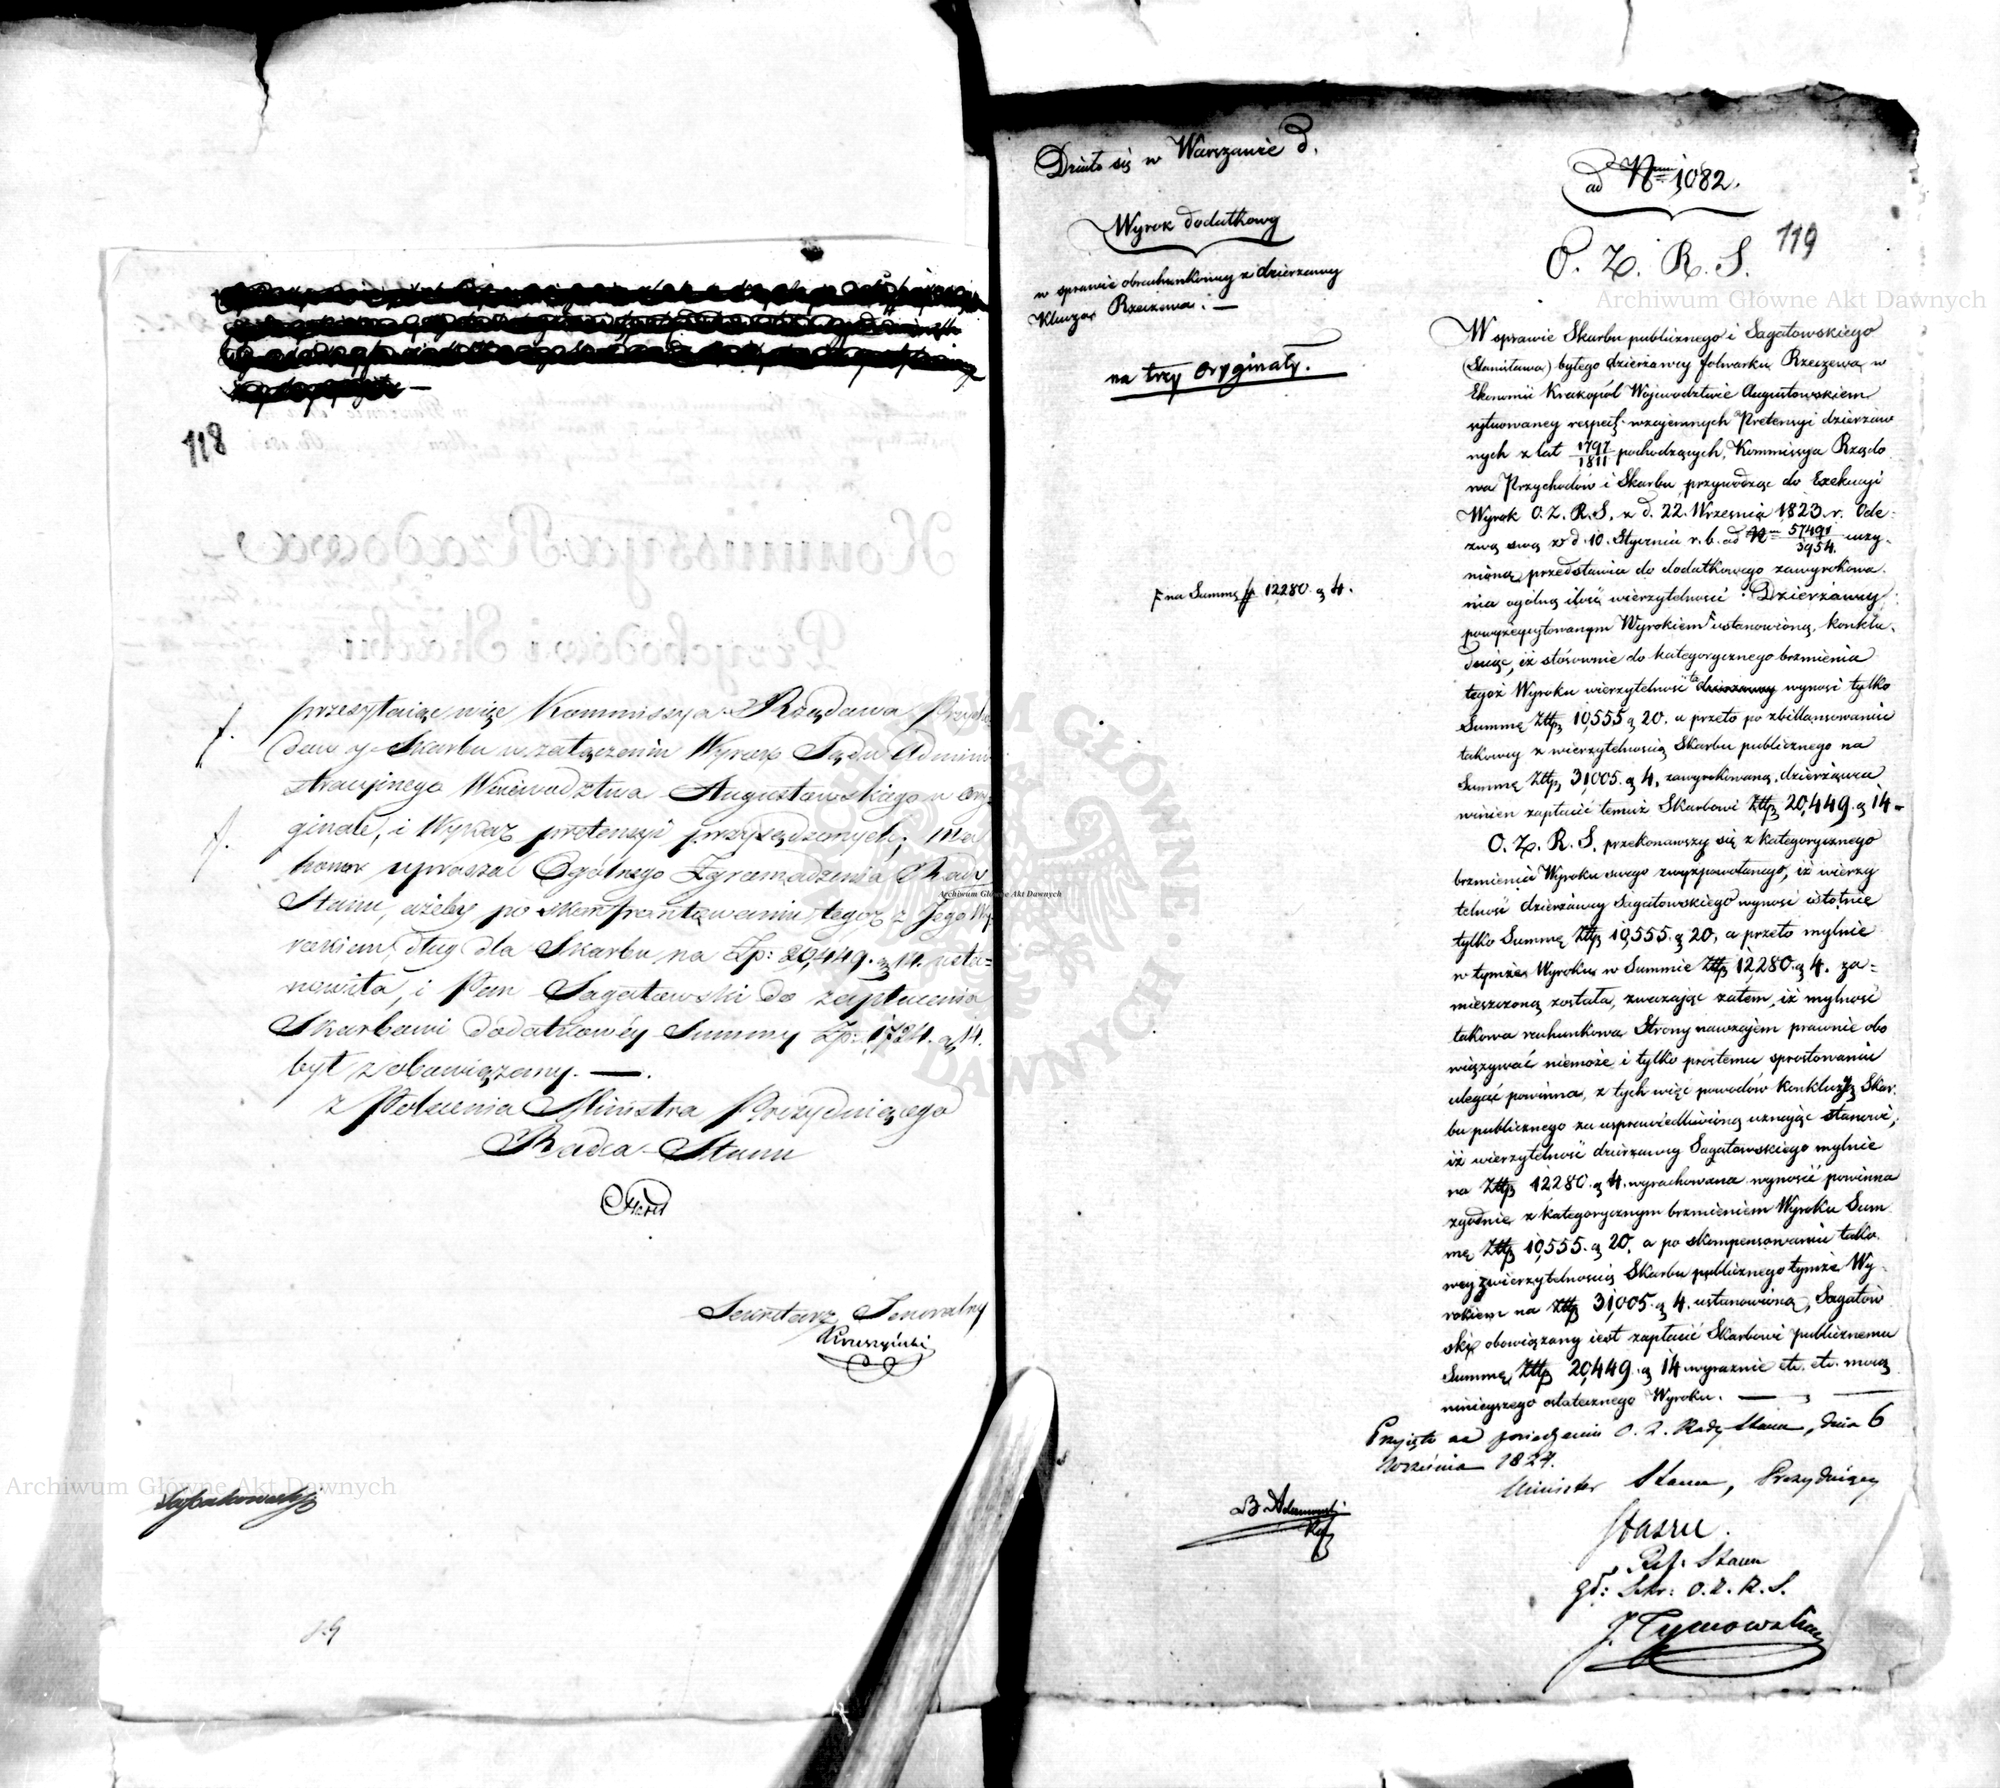 118
przesyłaiąc więc Kommissya Rządowa Przycho
dow y Skarbu w załączeniu Wyrok Sądu Admini
stracyinego Wojewodztwa Augustowskiego w ory
ginale, i Wykaz pretensyi przysądzonych; ma
honor upraszać Ogólnego Zgromadzenia Rady
Stanu, ażeby po skonfrontowaniu tegoż z Jego Wy
rokiem, dług dla Skarbu na Zp: 20,449. g 14. usta=
nowiła, i Pan Sagatowski do zapłacenia
Skarbowi dodatkowéy Summy Zp: 1724. g 14.
był zobowiązany. —.
z Polecenia Ministra Prezyduiącego
Radca Stanu
Sekretarz Jeneralny
Kruszyński
Działo się w Warszawie d.
Wyrok dodatkowy
w sprawie obrachunkowey z dzierzawy
Klucza Rzeczewa. —
na trzy Oryginały.
na Summę zł. 12280. g 4.
ad Num 1082.
119
O. Z. R. S.
W sprawie Skarbu publicznego i Sagatowskiego
(Stanisława) byłego dzierżawcy folwarku Rzeczewa w
Ekonomii Krakopol Wojewodztwie Augustowskiem
sytuowaney respeć. wzajemnych Pretensyi dzierzaw
nych z lat 1797/1811 pochodzących, Kommissya Rządo
wa Przychodów i Skarbu, przywodząc do Exekucyi
Wyrok O. Z. R. S. z d. 22. Września 1823. r. Ode:
zwą swą z d. 10. Stycznia r. b. ad Nm 57491/3954. uczy-
nioną przedstawia do dodatkowego zawyrokowa.
nia ogólną ilość wierzytelności Dzierżawcy
powyżejcytowanym Wyrokiem ustanowioną, konklu.
dując, iż stósownie do kategorycznego brzmienia
tegoż Wyroku wierzytelność ta dzierzawcy wynosi tylko
Summę Złtp 10,555 g 20. a przeto po zbillansowaniu
takowey z wierzytelnością Skarbu publicznego na
Summę Złtp. 31,005. g 4. zawyrokowaną, dzierżawca
winien zapłacić temuż Skarbowi Złtp 20,449. g 14-
O. Z. R. S. przekonawszy się z kategorycznego
brzmienia Wyroku swego zwyżpowołanego, iż wierzy
telność dzierżawcy Sagatowskiego wynosi istotnie
tylko Summę Złtp 10,555. g 20, a przeto mylnie
w tymże Wyroku w Summie Złtp 12,280. g 4. za=
mieszczoną została, zważając zatem, iż mylność
takowa rachunkowa Strony nawzajem prawnie obo
wiązywać niemoże i tylko prostemu sprostowaniu
ulegać powinna, z tych więc powodów Konkluzją Skar.
bu publicznego za usprawiedliwioną uznając stanowi,
iż wierzytelność dzierzawcy Sagatowskiego mylnie
na Złtp 12280. g 4. wyrachowana wynosić powinna
zgodnie z kategorycznym brzmieniem Wyroku Sum
mę Złtp 10,555. g 20. a po skompensowaniu tako.
wey z wierzytelnością Skarbu publicznego tymże Wy-
rokiem na Złtp 31,005. g 4. ustanowioną, Sagatow
ski obowiązany iest zapłacić Skarbowi publicznemu
Summę Złtp 20,449. g 14 wyraznie etc. etc. mocą
ninieyszego ostatecznego Wyroku. —
Przyięto na posiedzeniu O. Z. Rady Stanu, dnia 6
Września 1824.
Minister Stanu, Prezyduiący
Staszic.
Ref. Stanu
gd: Sekr: O. Z. R. S.
J. Tymowski
Archiwum Główne Akt Dawnych
Archiwum Główne Akt Dawnych
Archiwum Główne Akt Dawnych
ARCHIWUM GŁÓWNE AKT DAWNYCH